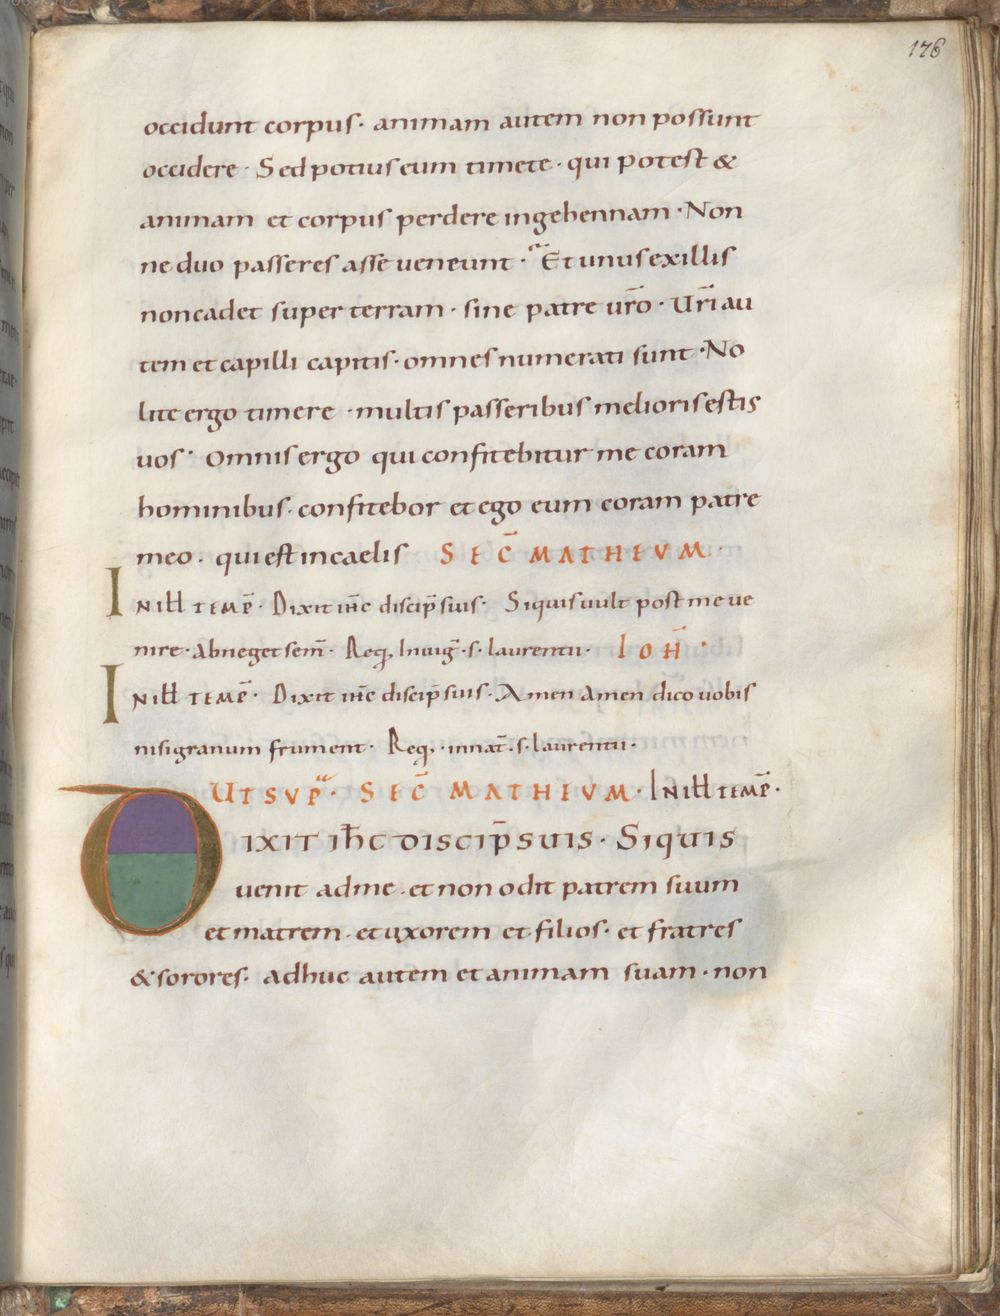 176
occidunt corpus · animam autem non possunt
occidere · Sed potius eum timete · qui potest &
animam et corpus perdere in gehennam · Non
ne duo passeres asse veneunt · Et unus ex illis
non cadet super terram · sine patre vr̄o · Vr̄i au
tem et capilli capitis · omnes numerati sunt · No
lite ergo timere · multis passeribus melioris estis
vos · Omnis ergo qui confitebitur me coram
hominibus · confitebor et ego eum coram patre
meo · qui est in caelis SEC̄ MATHEVM ·
IN ILƗ TEMP̄ · Dixit ih̄c discip̄ suis · Siquis vult post me ve
nire · Abneget sem̄ · Req, In uiḡ · s · laurentii · IOH̄ ·
IN ILƗ TEMP̄ · Dixit ih̄c discip̄ suis · Amen amen dico vobis
nisi granum frument · Req, · in nat̄ · s · laurentii ·
UT SVP̄ · SEC̄ MATHEVM · IN ILƗ TEMP̄ ·
DIXIT IH̄C DISCIP̄ SUIS · Siquis
venit ad me · et non odit patrem suum
et matrem · et uxorem et filios · et fratres
& sorores · adhuc autem et animam suam · non